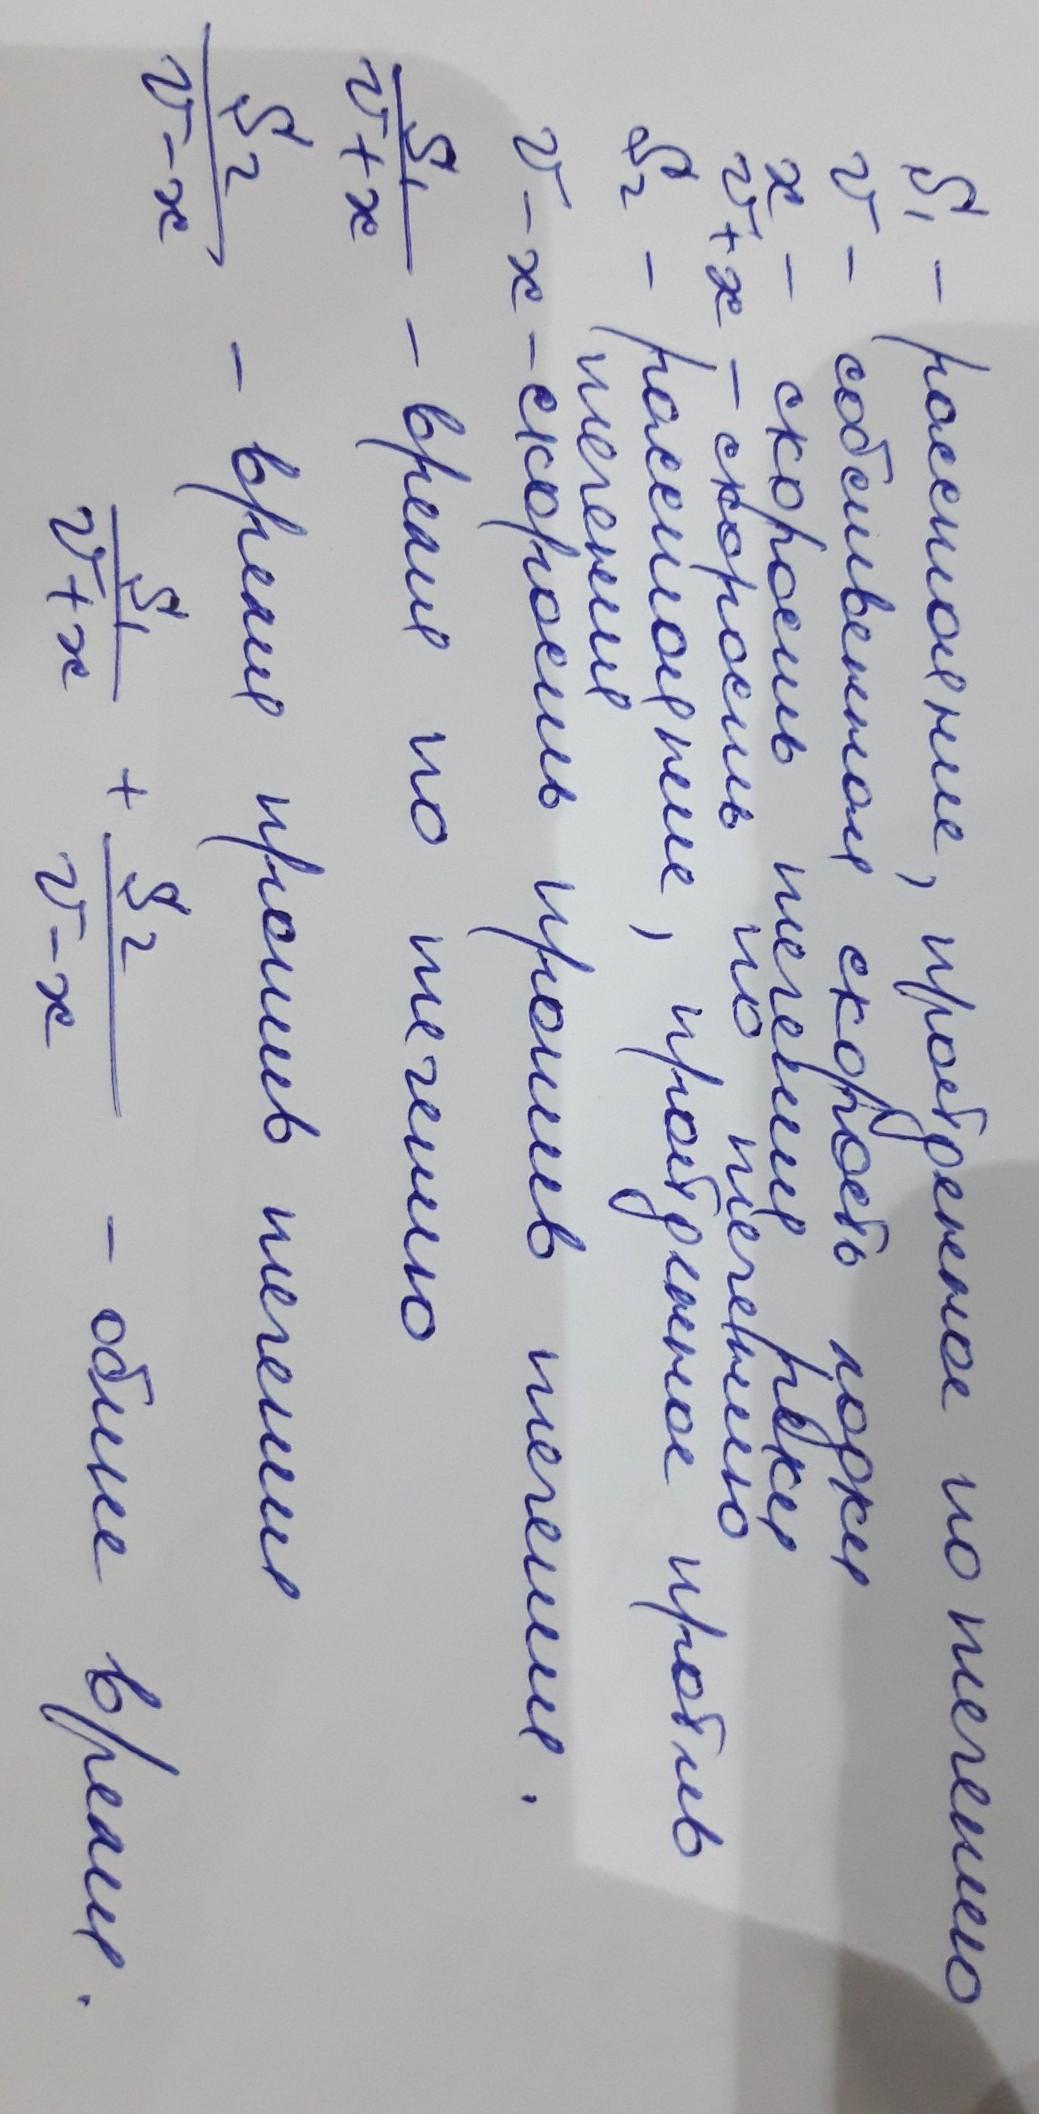 S₁ - расстояние, пройденное по течению
v - собственная скорость лодки
x - скорость течения реки
v + x - скорость по течению
S₂ - расстояние, пройденное против
течения
v - x - скорость против течения.
S₁/(v + x) - время по течению
S₂/(v - x) - время против течения
S₁/(v + x) + S₂/(v - x) - общее время.